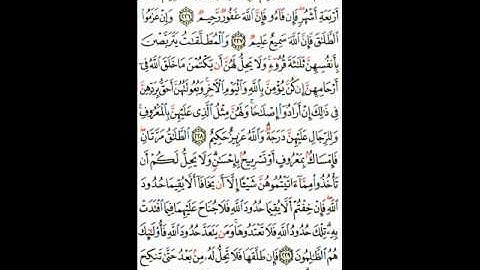 أَرْبَعَةِ أَشْهُرٍ فَإِن فَآءُو فَإِنَّ ٱللَّهَ غَفُورٌ رَّحِيمٌ ٢٢٦ وَإِنْ عَزَمُوا۟
ٱلطَّلَٰقَ فَإِنَّ ٱللَّهَ سَمِيعٌ عَلِيمٌ ٢٢٧ وَٱلْمُطَلَّقَٰتُ يَتَرَبَّصْنَ
بِأَنفُسِهِنَّ ثَلَٰثَةَ قُرُوٓءٍ وَلَا يَحِلُّ لَهُنَّ أَن يَكْتُمْنَ مَا خَلَقَ ٱللَّهُ فِىٓ
أَرْحَامِهِنَّ إِن كُنَّ يُؤْمِنَّ بِٱللَّهِ وَٱلْيَوْمِ ٱلْءَاخِرِ وَبُعُولَتُهُنَّ أَحَقُّ بِرَدِّهِنَّ
فِى ذَٰلِكَ إِنْ أَرَادُوٓا۟ إِصْلَٰحًا وَلَهُنَّ مِثْلُ ٱلَّذِى عَلَيْهِنَّ بِٱلْمَعْرُوفِ
وَلِلرِّجَالِ عَلَيْهِنَّ دَرَجَةٌ وَٱللَّهُ عَزِيزٌ حَكِيمٌ ٢٢٨ ٱلطَّلَٰقُ مَرَّتَانِ
فَإِمْسَاكٌۢ بِمَعْرُوفٍ أَوْ تَسْرِيحٌۢ بِإِحْسَٰنٍ وَلَا يَحِلُّ لَكُمْ أَن
تَأْخُذُوا۟ مِمَّآ ءَاتَيْتُمُوهُنَّ شَيْـًٔا إِلَّآ أَن يَخَافَآ أَلَّا يُقِيمَا حُدُودَ
ٱللَّهِ فَإِنْ خِفْتُمْ أَلَّا يُقِيمَا حُدُودَ ٱللَّهِ فَلَا جُنَاحَ عَلَيْهِمَا فِيمَا ٱفْتَدَتْ
بِهِۦ تِلْكَ حُدُودُ ٱللَّهِ فَلَا تَعْتَدُوهَا وَمَن يَتَعَدَّ حُدُودَ ٱللَّهِ فَأُو۟لَٰٓئِكَ
هُمُ ٱلظَّٰلِمُونَ ٢٢٩ فَإِن طَلَّقَهَا فَلَا تَحِلُّ لَهُۥ مِنۢ بَعْدُ حَتَّىٰ تَنكِحَ